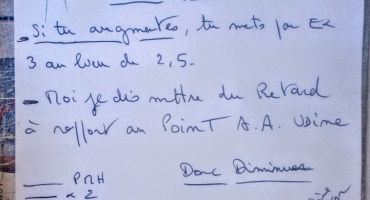 - Si tu augmentes, tu mets par Ex
3 au lieu de 2,5.
- Moi je dis mettre du Retard
à rapport au Point A.A. Usine
PMH Donc Diminues
x 2